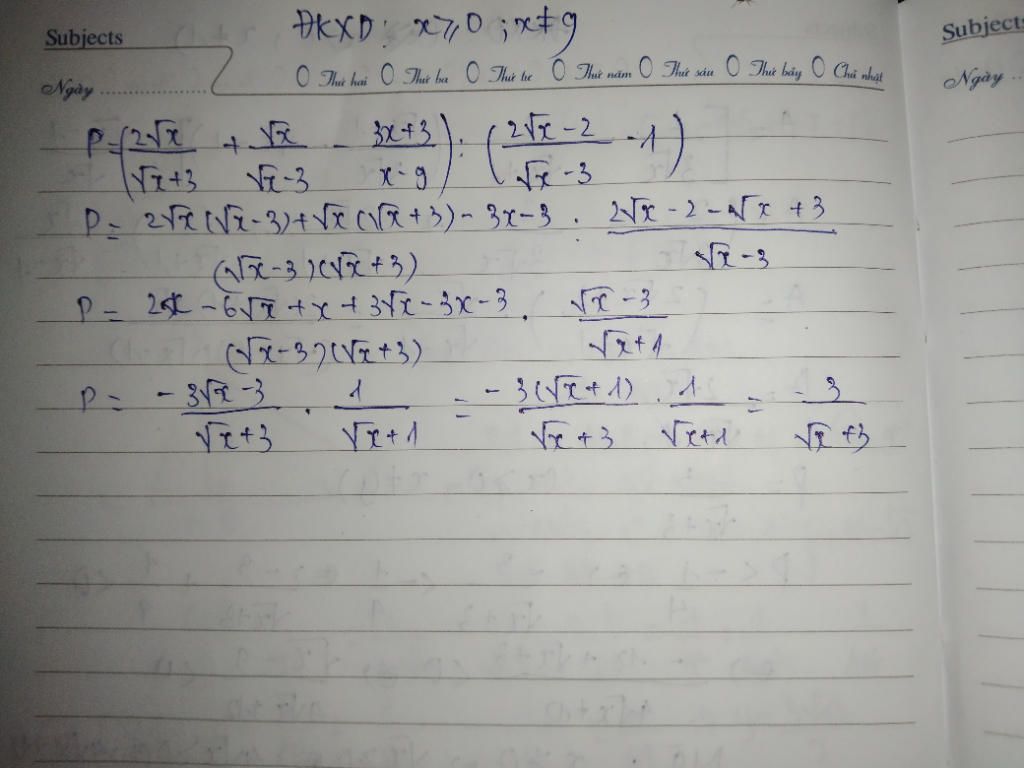 ĐKXD: x ≥ 0 ; x ≠ 9
Subjects
Subjects
Ngày ..................... Thứ hai Thứ ba Thứ tư Thứ năm Thứ sáu Thứ bảy Chủ nhật
Ngày ..
P = (2√x/(√x+3) + √x/(√x-3) - (3x+3)/(x-9)) : ((2√x-2)/(√x-3) - 1)
P = (2√x(√x-3)+√x(√x+3)-3x-3)/((√x-3)(√x+3)) : (2√x-2-√x+3)/(√x-3)
P = (2x-6√x+x+3√x-3x-3)/((√x-3)(√x+3)) . (√x-3)/(√x+1)
P = (-3√x-3)/(√x+3) . 1/(√x+1) = (-3(√x+1))/(√x+3) . 1/(√x+1) = -3/(√x+3)